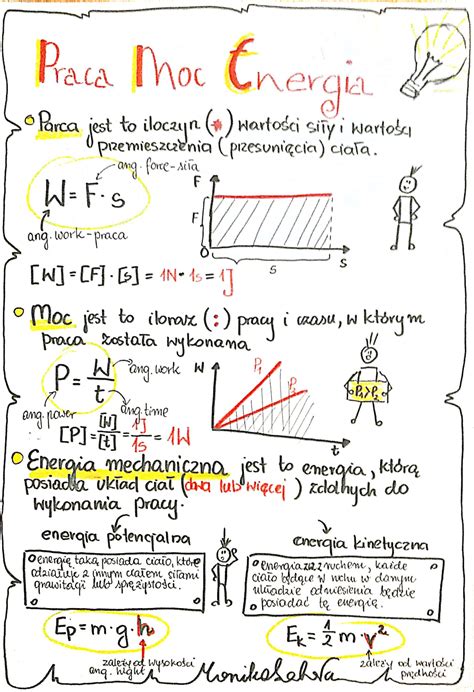 Praca Moc Energia
Parca jest to iloczyn (•) wartości siły i wartości
przemieszczenia (przesunięcia) ciała.
ang. force-siła
W = F · s
ang. work-praca
F
F
0
s
s
[W] = [F] · [s] = 1N · 1s = 1J
Moc jest to iloraz (:) pracy i czasu, w którym
praca została wykonana
P = W/t
ang. work
ang. power
ang. time
W
P₁
P₂
t
P₁>P₂
[P] = [W]/[t] = 1J/1s = 1W
Energia mechaniczna jest to energia, którą
posiada układ ciał (dwa lub więcej) zdolnych do
wykonania pracy.
energia potencjalna
energię taką posiada ciało, które
działuje z innym ciałem siłami
grawitacji lub sprężystości.
Ep = m · g · h
zależy od wysokości
ang. hight
energia kinetyczna
energia z ruchem, każde
ciało będące w ruchu w danym
układzie odniesienia będzie
posiadać tę energię.
Ek = 1/2 m · v²
zależy od wartości
prędkości